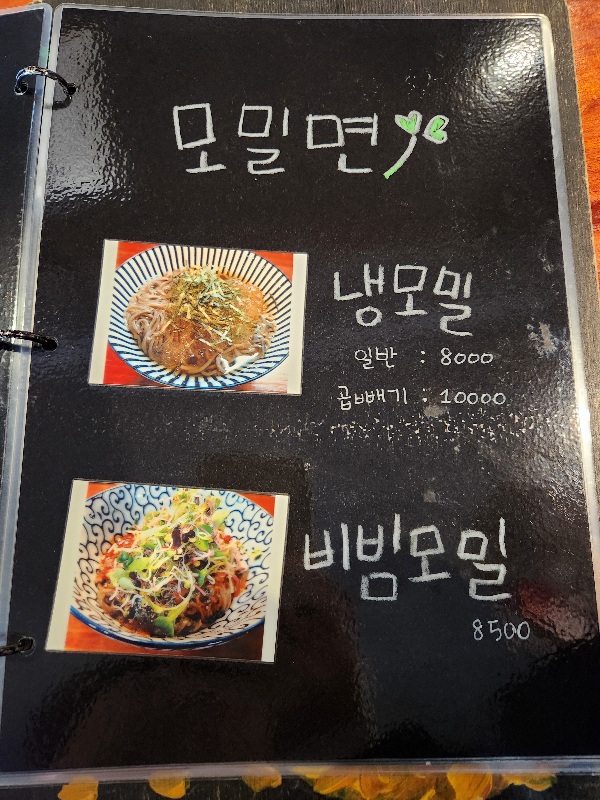 모밀면
냉모밀
일반 : 8000
곱빼기 : 10000
비빔모밀
8500